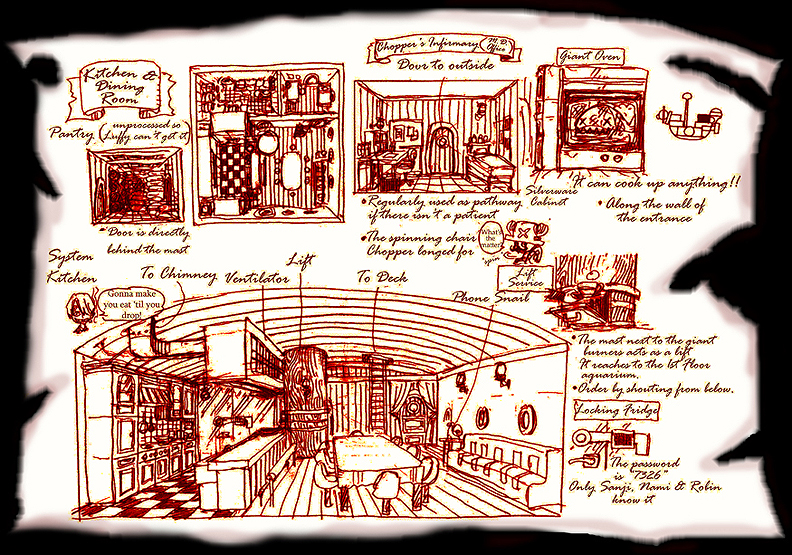 Kitchen &
Dining
Room
Pantry (unprocessed so
Luffy can't get it)
Door is directly
behind the mast
Chopper's Infirmary
M.D.
Office
Door to outside
Regularly used as pathway
if there isn't a patient
The spinning chair
Chopper longed for
What's
the
matter?
spin
Giant Oven
It can cook up anything!!
Along the wall of
the entrance
Silverware
Cabinet
System
Kitchen
Gonna make
you eat 'til you
drop!
To Chimney
Ventilator
Lift
To Deck
Phone Snail
Lift
Service
The mast next to the giant
burners acts as a lift
It reaches to the 1st Floor
aquarium.
Order by shouting from below.
Locking Fridge
The password
is "7326"
Only Sanji, Nami & Robin
know it